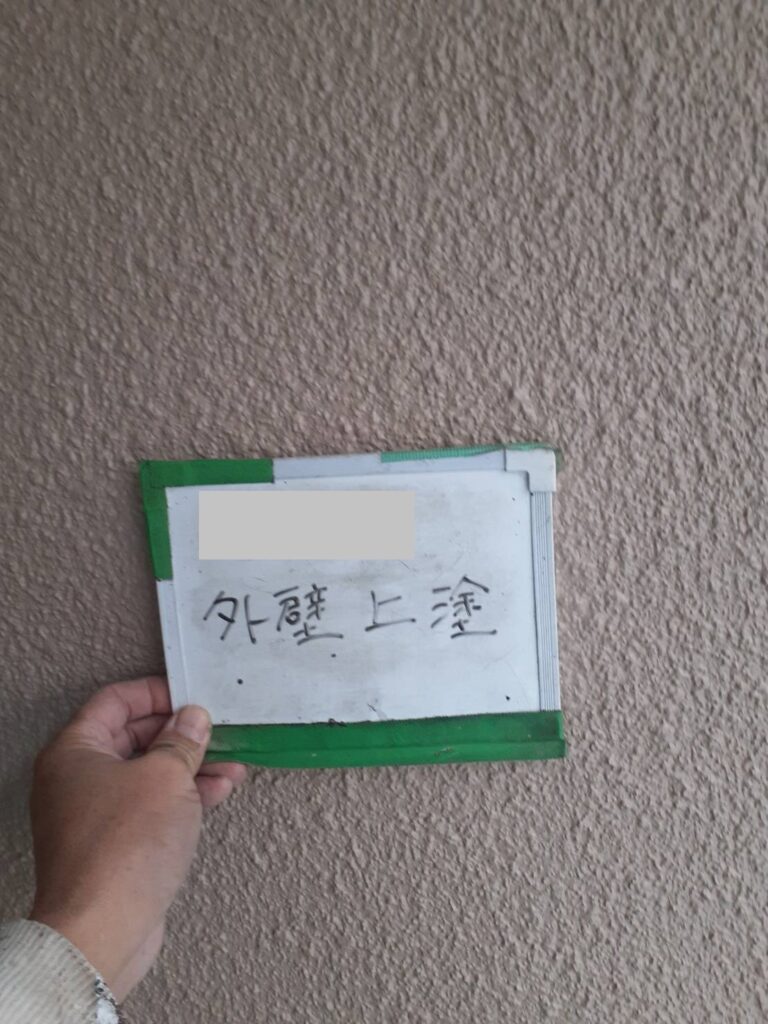 外壁上塗